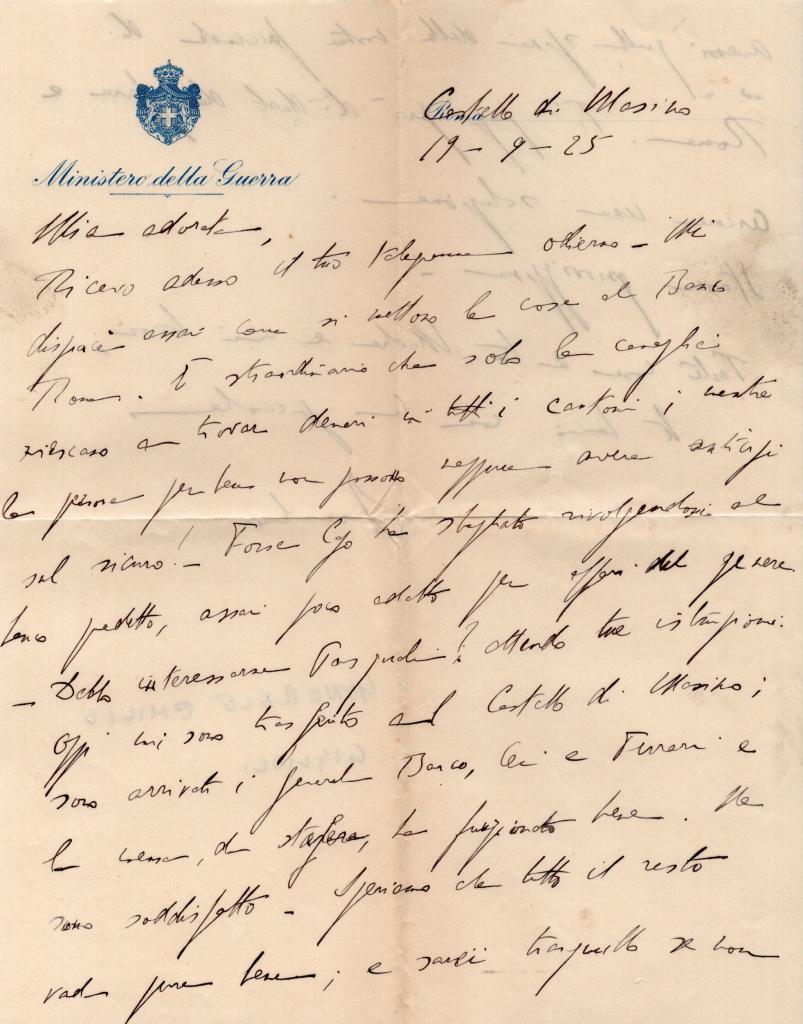 Ministero della Guerra
Roma
Castello di Masino
19 - 9 - 25
Mia adorata,
Ricevo adesso il tuo odierno - Mi
dispiace assai come si mettono le cose al Banco
Roma. È straordinario che solo le canaglie
riescano a trovar denari in tutti i cantoni, mentre
le persone per bene non possono neppure avere anticipi
sul sicuro! - Forse Ugo ha sbagliato rivolgendosi al
banco predetto, assai poco adatto per affari del genere.
- Debbo interessarne Pasqualini? Attendo tue istruzioni.
Oggi mi sono trasferito al Castello di Masino;
sono arrivati i generali Basso, Cei e Ferrari e
la mensa, da stasera, ha funzionato bene. Ne
sono soddisfatto - Speriamo che tutto il resto
vada pure bene; e sarei tranquillo se non